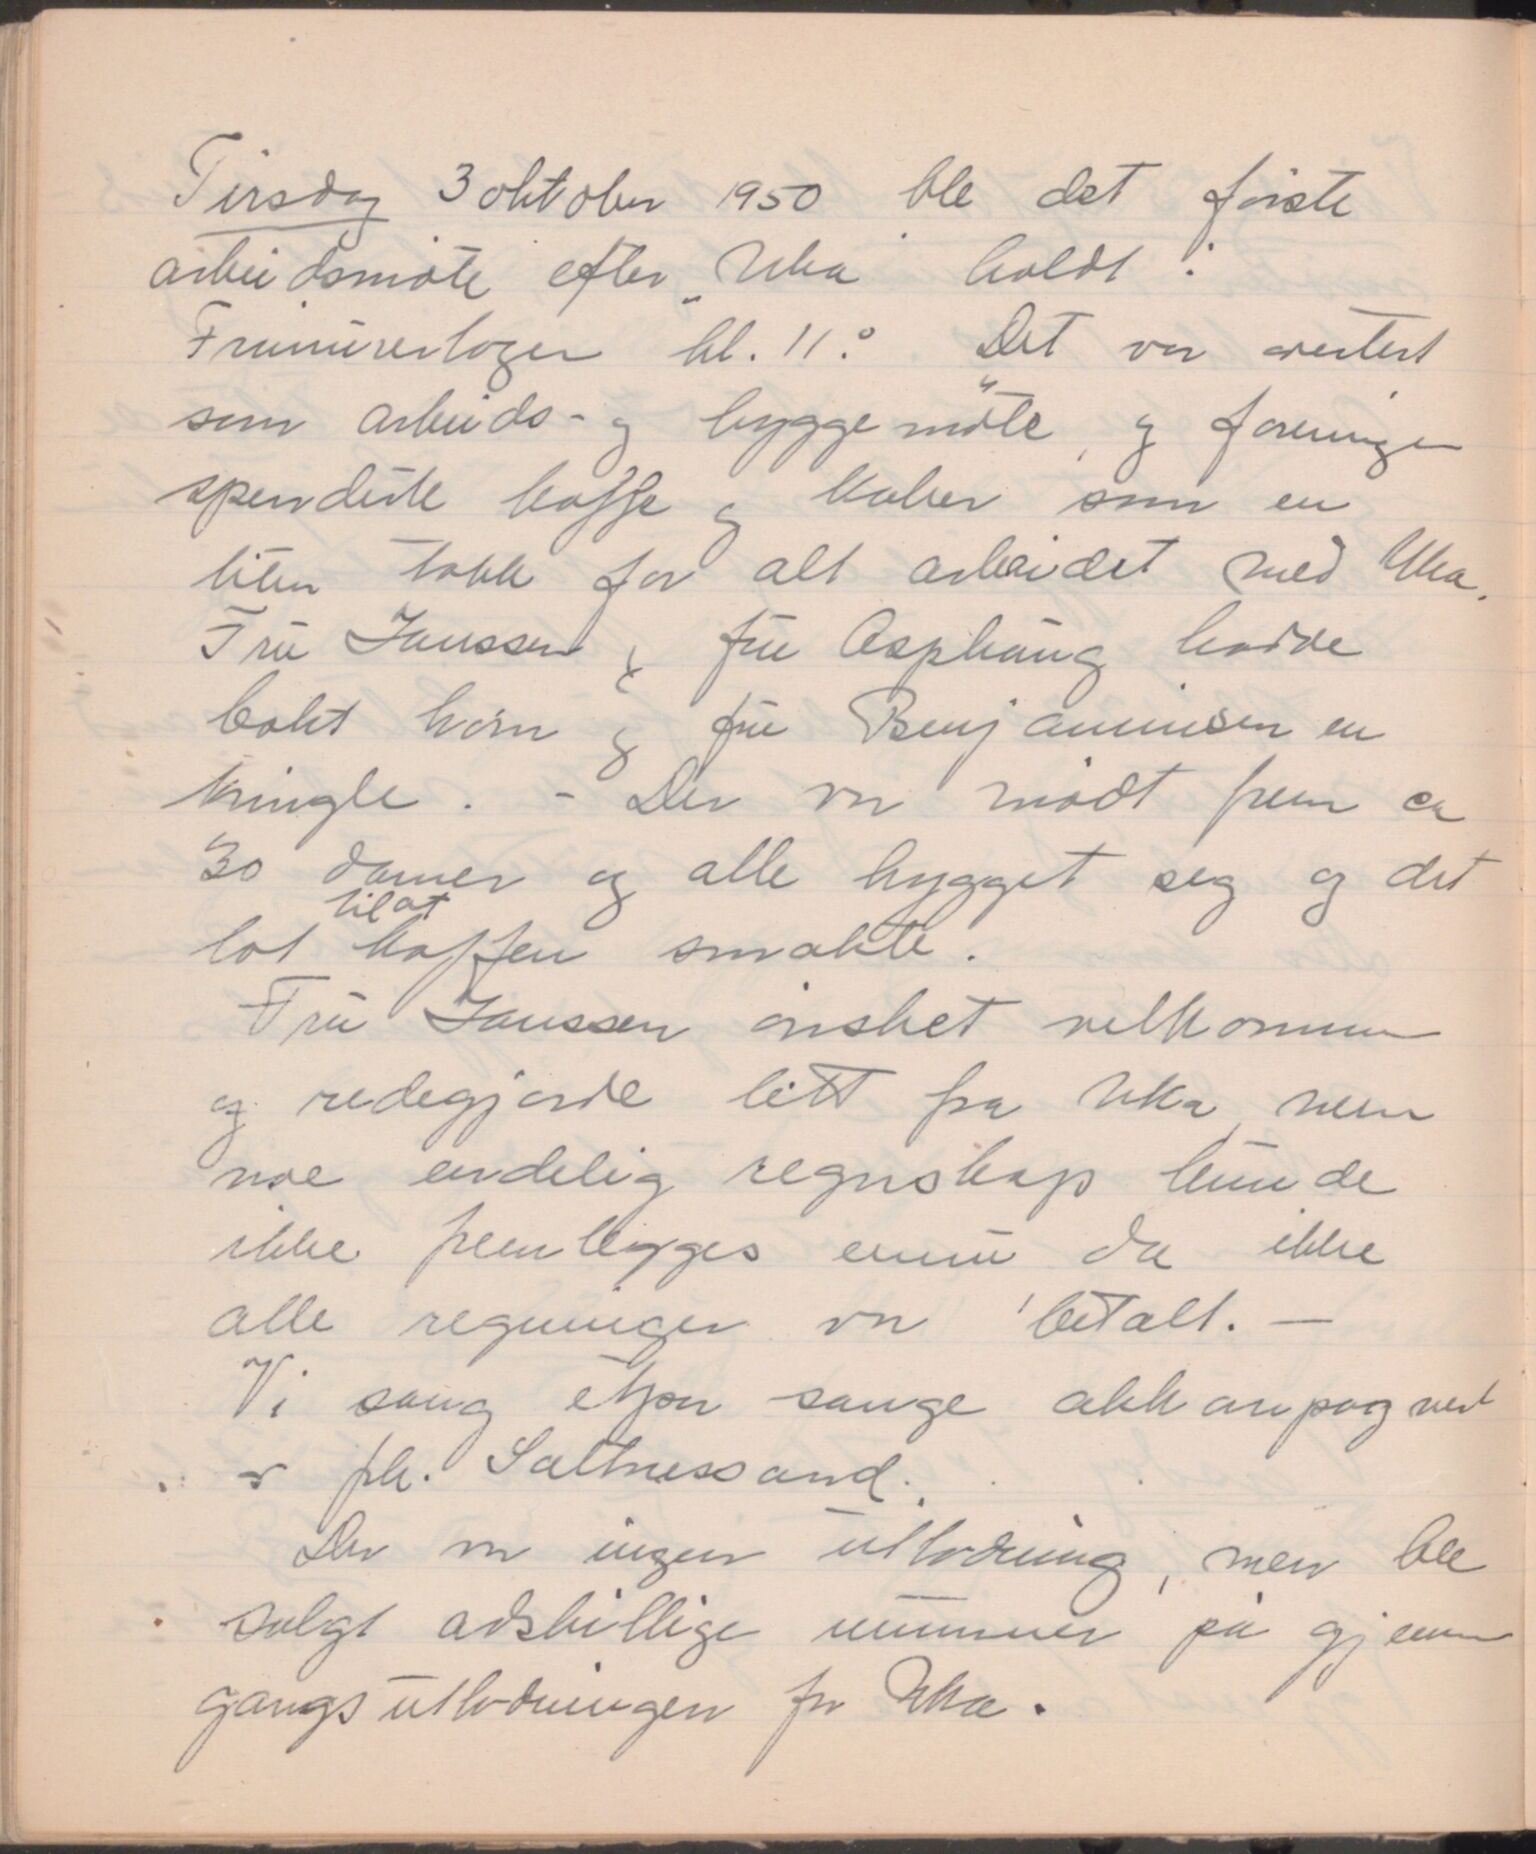 Tirsdag 3 oktober 1950 ble det første
arbeidsmøte efter "Uka" holdt i
Frimurerlogen kl. 11.° Det var avertert
som arbeids- og hyggemøte, og foreningen
spenderte kaffe og kaker som en
liten takk for alt arbeidet med Uka.
Fru Janssen og fru Asphaug hadde
bakt horn og fru Benjaminsen en
kringle. - Der var mødt frem ca
30 damer og alle hygget seg og det
lot til at kaffen smakte.
Fru Janssen ønsket velkommen
og redegjorde litt fra Uka, men
noe endelig regnskap kunde
ikke fremlegges ennu da ikke
alle regninger var betalt. —
Vi sang et par sange akkompagnert
av frk. Saltnessand.
Der var ingen utlodning, men ble
solgt adskillige nummer på gjennem
gangsutlodningen fra Uka.